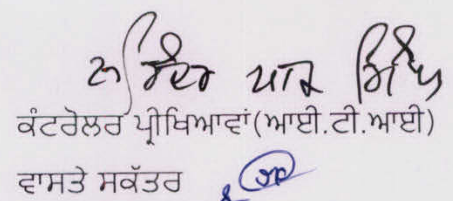 ਪਾਲ ਸਿੰਘ
ਕੰਟਰੋਲਰ ਪ੍ਰੀਖਿਆਵਾਂ(ਆਈ.ਟੀ.ਆਈ)
ਵਾਸਤੇ ਸਕੱਤਰ